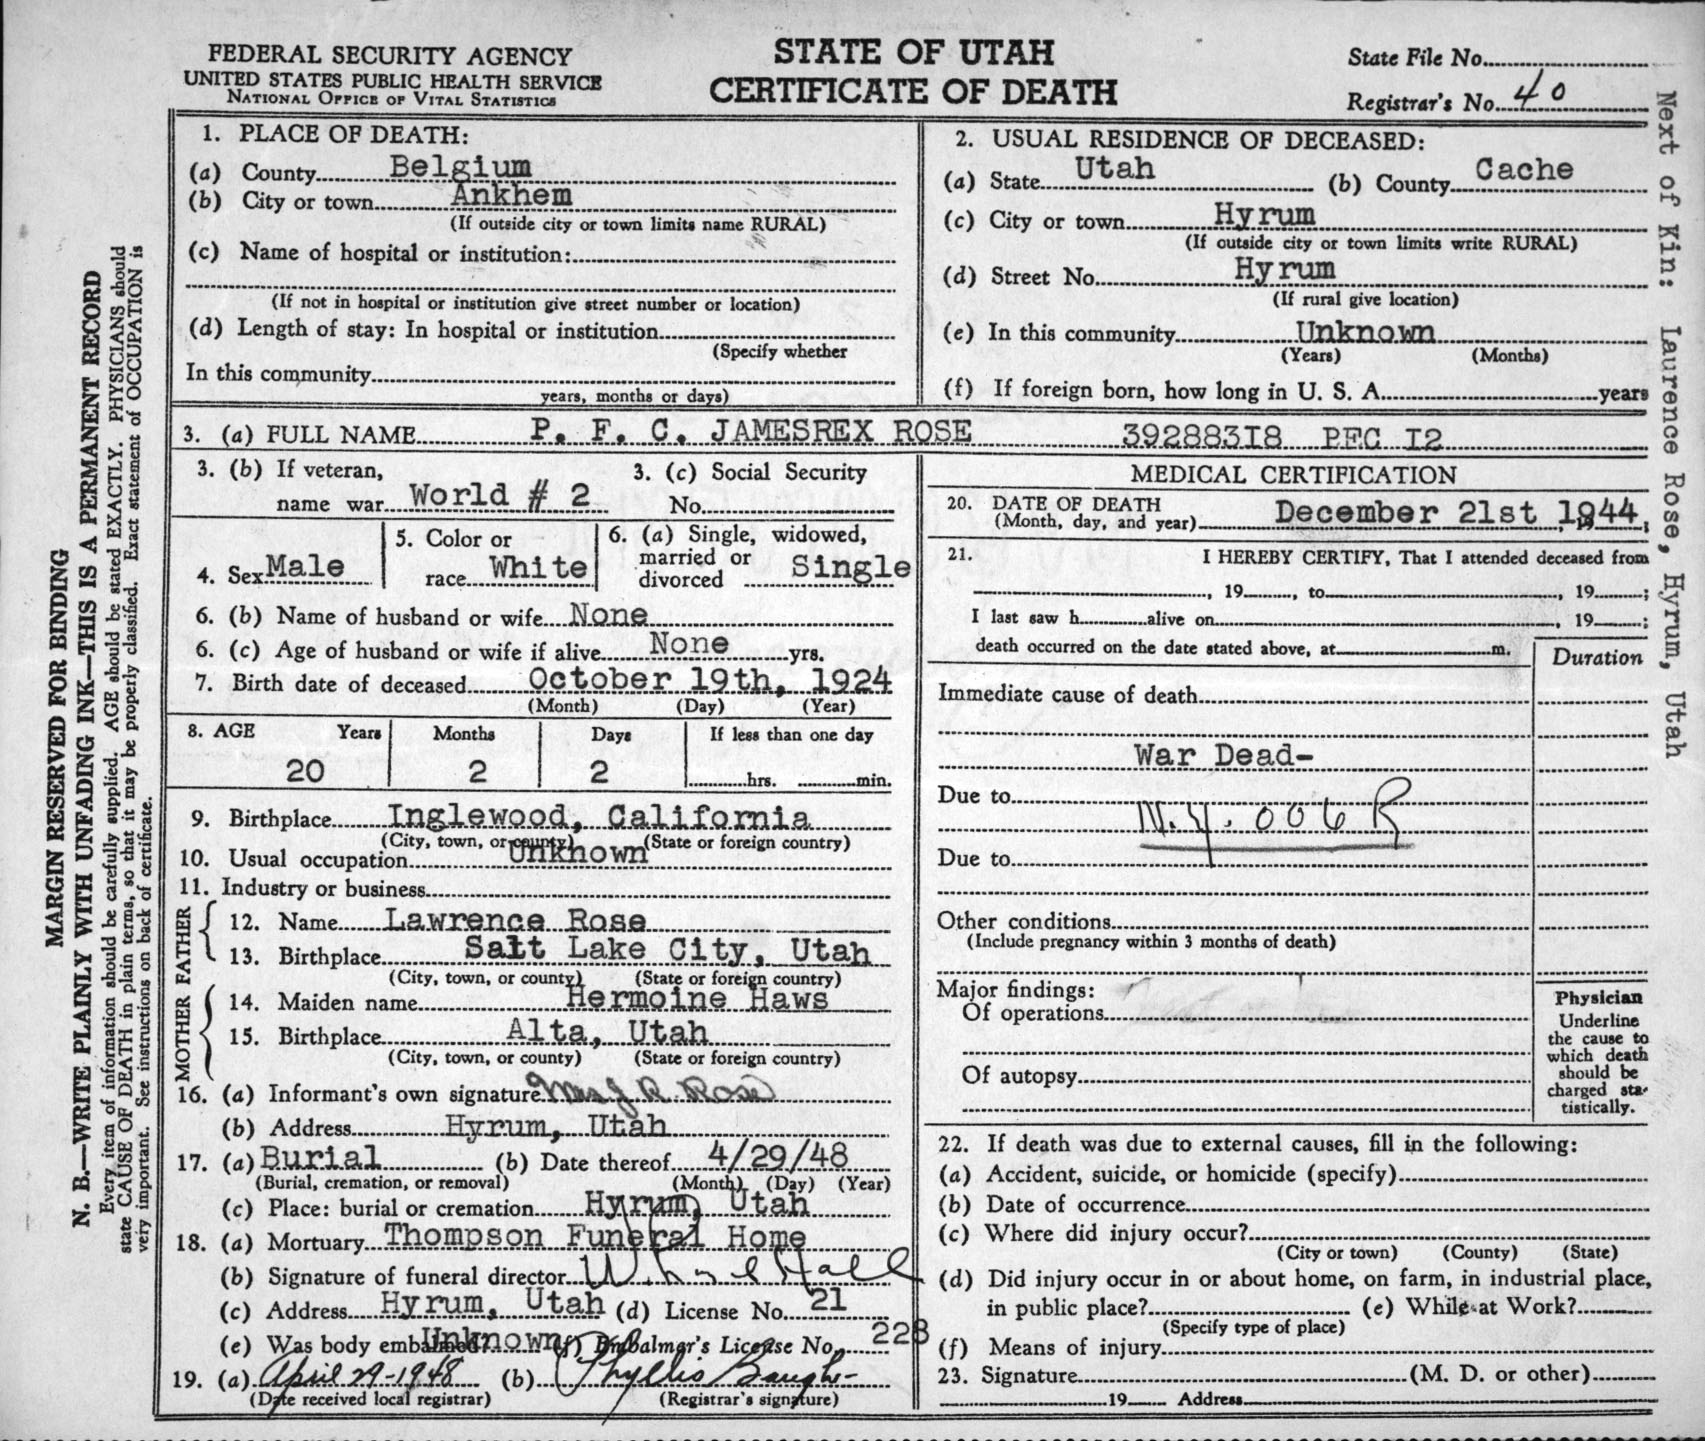 FEDERAL SECURITY AGENCY
UNITED STATES PUBLIC HEALTH SERVICE
NATIONAL OFFICE OF VITAL STATISTICS
STATE OF UTAH
CERTIFICATE OF DEATH
State File No.
Registrar's No. 40
1. PLACE OF DEATH:
(a) County Belgium
(b) City or town Ankhem
(If outside city or town limits name RURAL)
(c) Name of hospital or institution:
(If not in hospital or institution give street number or location)
(d) Length of stay: In hospital or institution
(Specify whether
In this community
years, months or days)
2. USUAL RESIDENCE OF DECEASED:
(a) State Utah (b) County Cache
(c) City or town Hyrum
(If outside city or town limits write RURAL)
(d) Street No. Hyrum
(If rural give location)
(e) In this community Unknown
(Years) (Months)
(f) If foreign born, how long in U. S. A. years
3. (a) FULL NAME P. F. C. JAMESREX ROSE 392883I8 PFC I2
3. (b) If veteran,
name war World # 2
3. (c) Social Security
No.
4. Sex Male
5. Color or
race White
6. (a) Single, widowed,
married or
divorced Single
6. (b) Name of husband or wife None
6. (c) Age of husband or wife if alive None yrs.
7. Birth date of deceased October 19th, 1924
(Month) (Day) (Year)
8. AGE Years Months Days If less than one day
20 2 2 hrs. min.
9. Birthplace Inglewood, California
(City, town, or county) (State or foreign country)
10. Usual occupation Unknown
11. Industry or business
FATHER
12. Name Lawrence Rose
13. Birthplace Salt Lake City, Utah
(City, town, or county) (State or foreign country)
MOTHER
14. Maiden name Hermoine Haws
15. Birthplace Alta, Utah
(City, town, or county) (State or foreign country)
16. (a) Informant's own signature Mrs J. R. Rose
(b) Address Hyrum, Utah
17. (a) Burial (b) Date thereof 4/29/48
(Burial, cremation, or removal) (Month) (Day) (Year)
(c) Place: burial or cremation Hyrum, Utah
18. (a) Mortuary Thompson Funeral Home
(b) Signature of funeral director Hall
(c) Address Hyrum, Utah (d) License No. 21
(e) Was body embalmed? Unknown (f) Embalmer's License No. 228
19. (a) April 29-1948 (b) Phyllis
(Date received local registrar) (Registrar's signature)
MEDICAL CERTIFICATION
20. DATE OF DEATH
(Month, day, and year) December 21st, 1944,
21. I HEREBY CERTIFY, That I attended deceased from
, 19 , to , 19 ;
I last saw h alive on , 19 ;
death occurred on the date stated above, at m.
Duration
Immediate cause of death
War Dead-
Due to
N.Y. 006 R
Due to
Other conditions
(Include pregnancy within 3 months of death)
Major findings:
Of operations
Of autopsy
Physician
Underline
the cause to
which death
should be
charged sta-
tistically.
22. If death was due to external causes, fill in the following:
(a) Accident, suicide, or homicide (specify)
(b) Date of occurrence
(c) Where did injury occur?
(City or town) (County) (State)
(d) Did injury occur in or about home, on farm, in industrial place,
in public place? (e) While at Work?
(Specify type of place)
(f) Means of injury
23. Signature (M. D. or other)
19 Address
MARGIN RESERVED FOR BINDING
N. B.—WRITE PLAINLY WITH UNFADING INK—THIS IS A PERMANENT RECORD
Every item of information should be carefully supplied. AGE should be stated EXACTLY. PHYSICIANS should
state CAUSE OF DEATH in plain terms, so that it may be properly classified. Exact statement of OCCUPATION is
very important. See instructions on back of certificate.
Next of Kin: Laurence Rose, Hyrum, Utah